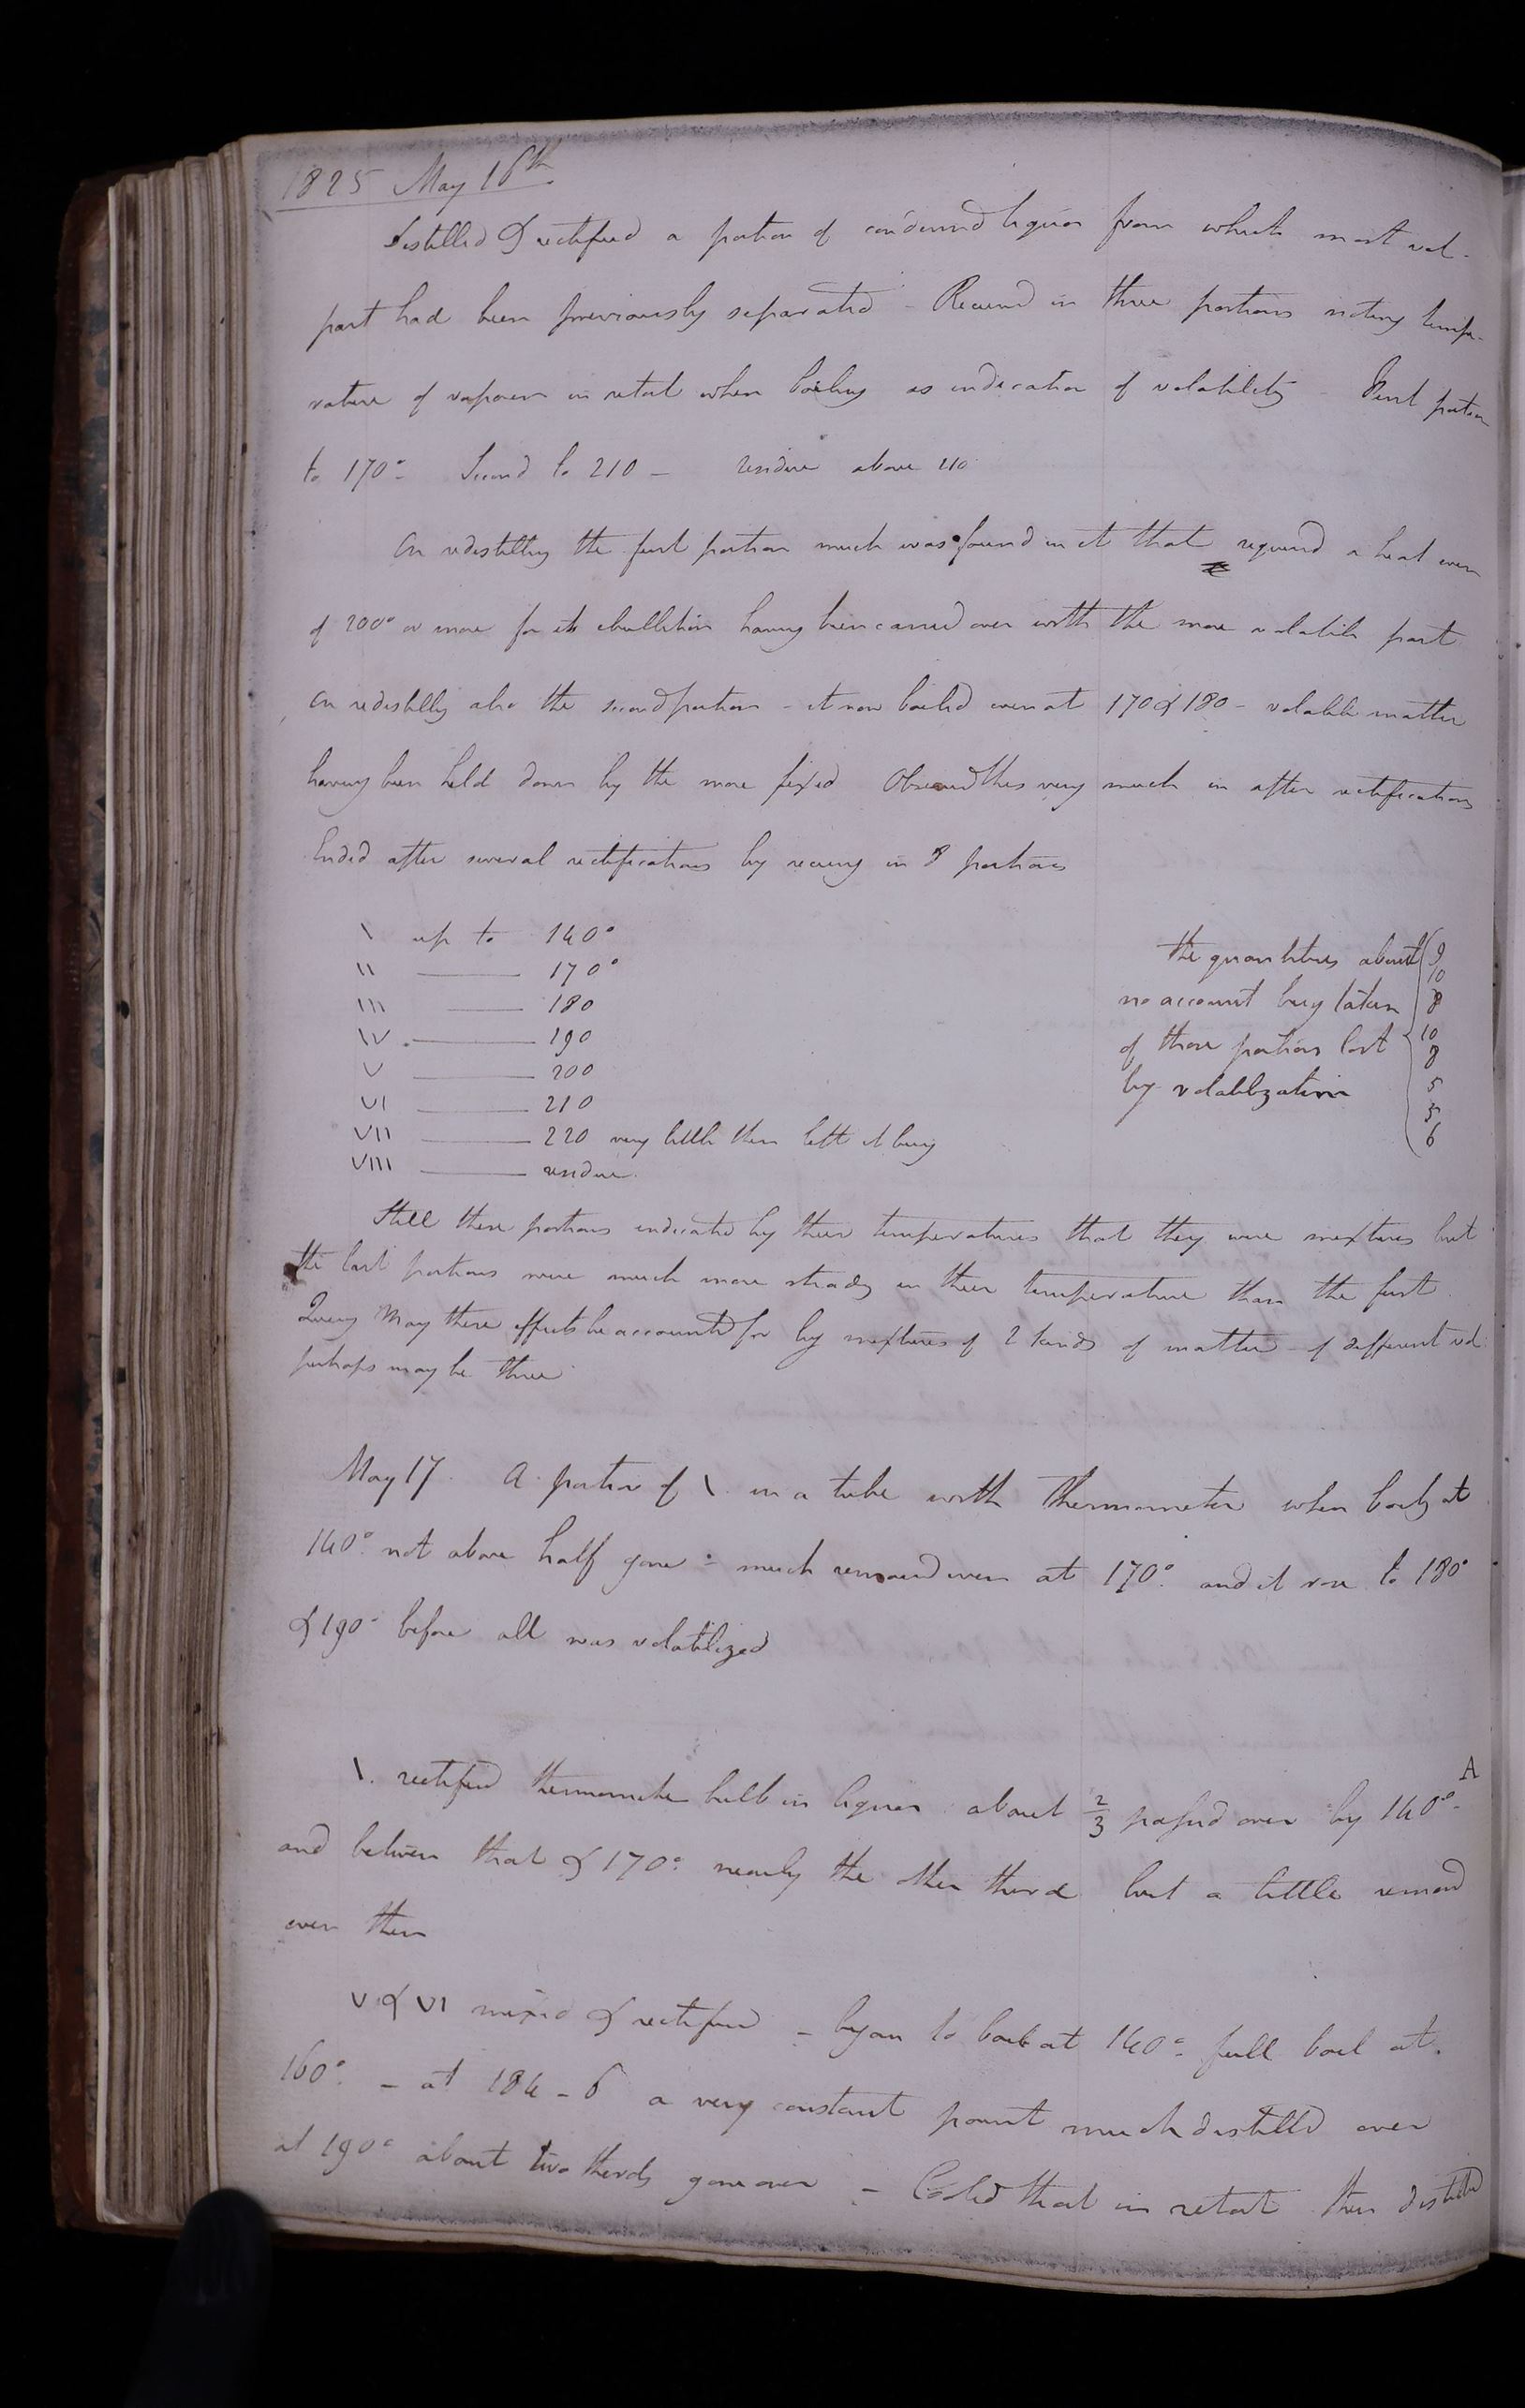 1825 May 16th
Distilled & rectified a portion of condensed liquor from which most vol.
part had been previously separated - Received in three portions noting tempe-
rature of vapour in retort when boiling as indication of volatility - First portion
to 170° - Second to 210 - residue above 210
On redistilling the first portion much was found in it that required a heat even
of 200° or more for its ebullition having been carried over with the more volatile part
On redistilling also the second portion - it now boiled even at 170 & 180 - volatile matter
having been held down by the more fixed Observed this very much in after rectifications
Ended after several rectifications by receiving in 8 portions
\ up to 140°
\\ ——— 170°
\\\ ——— 180
\V ——— 190
V ——— 200
VI ——— 210
VII ——— 220 very little then left it being
VIII ——— residue.
the quantities about
no account being taken
of those portions lost
by volatilization
9
10
8
10
8
5
3
6
Still these portions indicated by their temperatures that they were mixtures but
the last portions were much more steady in their temperature than the first
Query May these effects be accounted for by mixtures of 2 kinds of matter - of different vol.
perhaps may be three
May 17. A portion of \. in a tube with thermometer when boilg at
140° not above half gone - much remained even at 170° and it rose to 180°
& 190° before all was volatilized
\. rectified thermometer bulb in liquor about 2/3 passed over by 140° - A
and between that & 170° nearly the other third but a little remaind
even then
V & VI mixed & rectified - began to boil at 140° full boil at
160° - at 184-6 a very constant point much distilled over
at 190° about two thirds gone over - Cooled that in retort then distilled